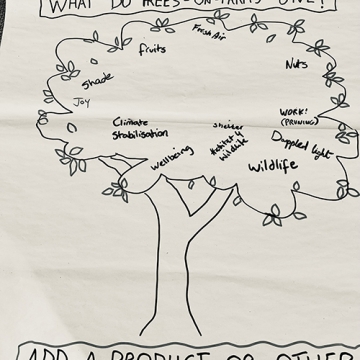 WHAT DO TREES-ON-FARMS GIVE?
Fresh Air
fruits
Nuts
Shade
Joy
WORK!
(PRUNING)
Climate
Stabilisation
shelter
Habitat 4
Wildlife
Dappled light
Wellbeing
Wildlife
ADD A PRODUCT OR OTHER